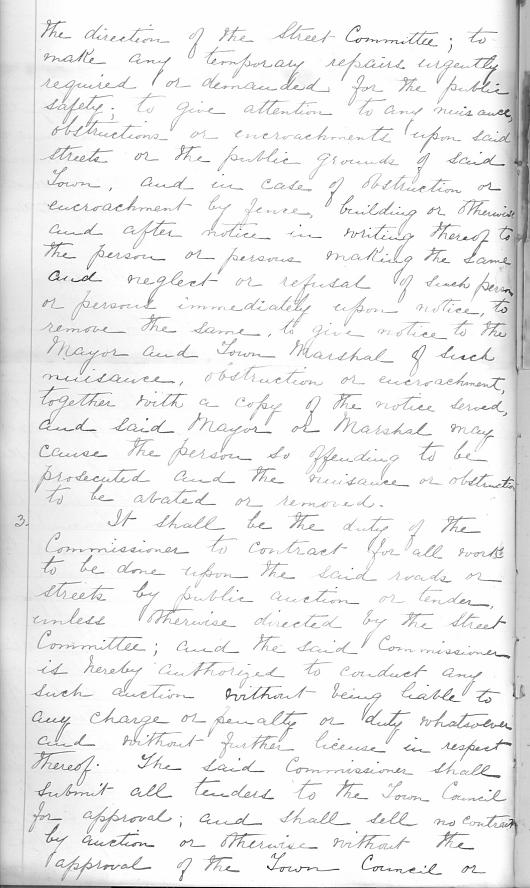 the direction of the Street Committee; to
make any temporary repairs urgently
required or demanded for the public
safety; to give attention to any nuisance,
obstructions or encroachments upon said
streets or the public grounds of said
Town, and in case of obstruction or
encroachment by fence, building or otherwise
and after notice in writing thereof to
the person or persons making the same
and neglect or refusal of such person
or persons immediately upon notice, to
remove the same, to give notice to the
Mayor and Town Marshal of such
nuisance, obstruction or encroachment,
together with a copy of the notice served,
and said Mayor or Marshal may
cause the person so offending to be
prosecuted and the nuisance or obstruction
to be abated or removed.
3. It shall be the duty of the
Commissioner to contract for all works
to be done upon the said roads or
streets by public auction or tender,
unless otherwise directed by the Street
Committee; and the said Commissioner
is hereby authorized to conduct any
such auction without being liable to
any charge or penalty or duty whatsoever
and without further license in respect
thereof. The said Commissioner shall
submit all tenders to the Town Council
for approval; and shall sell no contract
by auction or otherwise without the
approval of the Town Council or